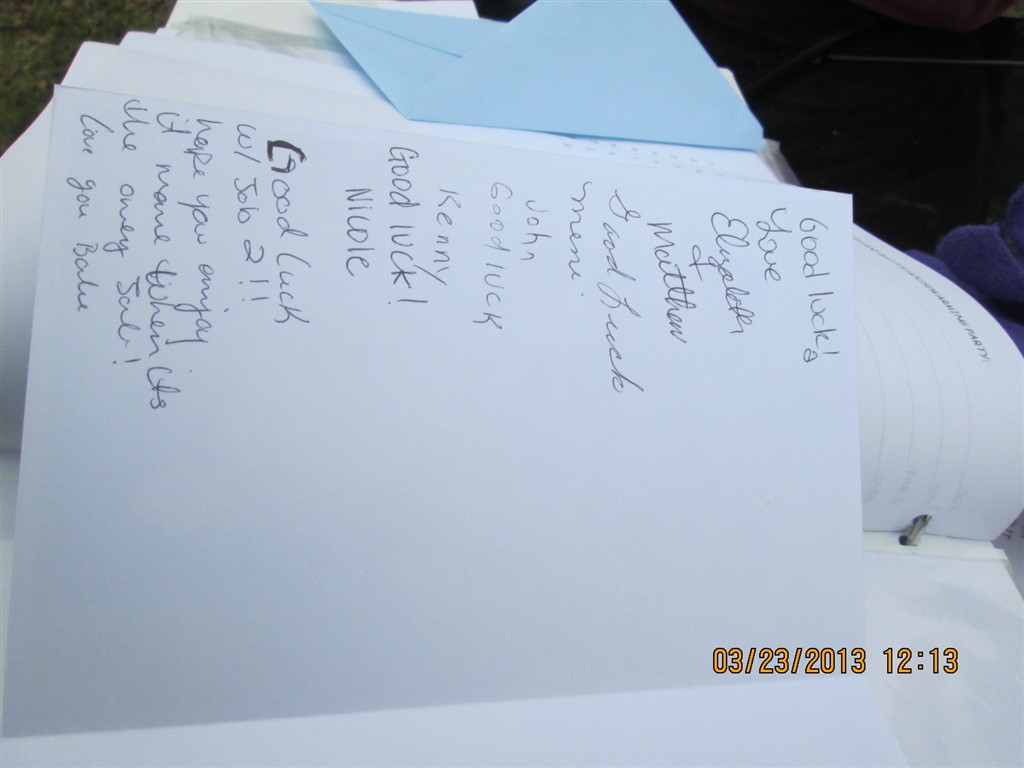 Good luck!
Love
Elizabeth
+
Matthew
Good Luck
mimi
John
Good luck
Kenny
Good luck!
Nicole
Good Luck
w/ Job 2!!
hope you enjoy
it more when its
the only Job!
Love you
PARTY:
03/23/2013 12:13